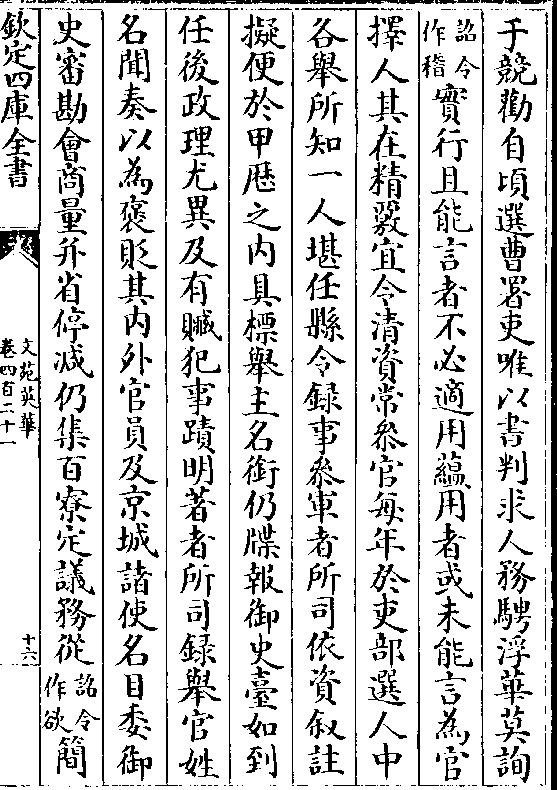 于競勸自頃選曹署吏唯以書判求人務騁浮華莫詢
詔令作稽實行且能言者不必適用蘊用者或未能言為官
擇人其在精覈宜令清資常叅官每年於吏部選人中
各舉所知一人堪任縣令録事叅軍者所司依資叙註
擬便於甲歴之内具標舉主名銜仍牒報御史臺如到
任後政理尤異及有贓犯事蹟明著者所司録舉官姓
名聞奏以為褒貶其内外官員及京城諸使名目委御
史審勘會商量并省停减仍集百寮定議務從詔令作欲簡
欽定四庫全書
文苑英華
卷四百二十一
十六